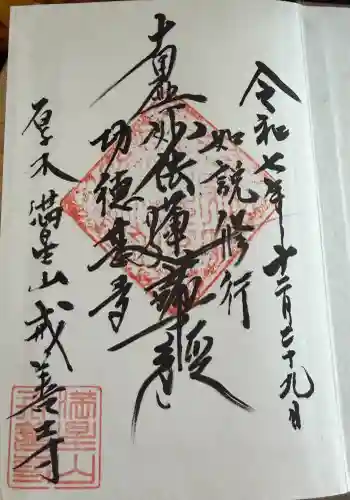 令和七年十二月二十九日
如説修行
南無妙法蓮華経
功徳甚多
厚木 満星山 戒善寺
満星山
戒善寺